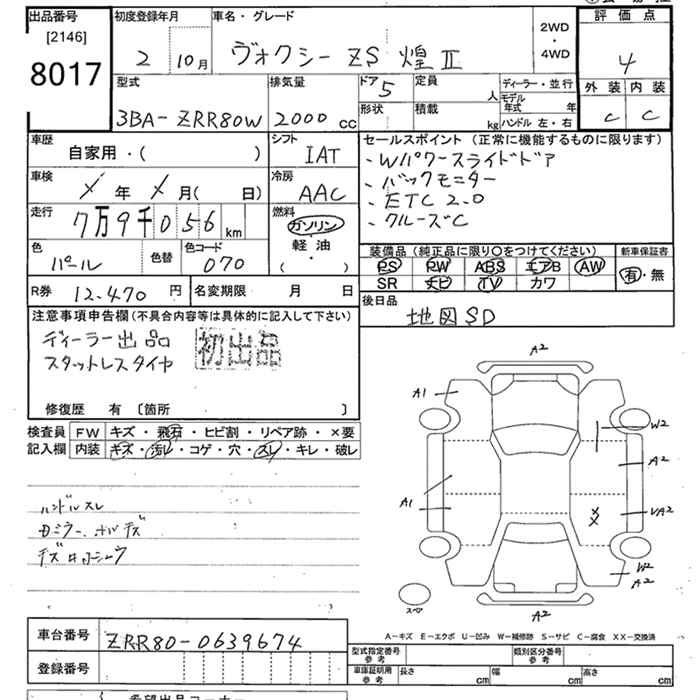 出品番号 初度登録年月 車名・グレード 2WD・4WD 評価点
[2146]
8017 2 10月 ヴォクシー ZS 煌Ⅱ 4
外装 内装
C C
型式 排気量 ドア 定員 ディーラー・並行
3BA-ZRR80W 2000 cc 5 人 モデル年式 年
形状 積載 kg ハンドル 左・右
車歴 シフト セールスポイント(正常に機能するものに限ります)
自家用・( ) IAT
・Wパワースライドドア
車検 冷房
・バックモニター
メ 年 メ 月( 日) AAC
・ETC 2.0
走行 燃料
・クルーズC
7万9千056km ガソリン
軽油
( ・ )
色 色替 色コード
パール 070
装備品(純正品に限り○をつけてください) 新車保証書
PS PW ABS エアB AW 有・無
SR ナビ TV カワ
R券 12.470 円 名変期限 月 日
後日品
地図SD
注意事項申告欄(不具合内容等は具体的に記入して下さい)
ディーラー出品 初出品
スタットレスタイヤ
修復歴 有 [箇所 ]
検査員 FW キズ・飛石・ヒビ割・リペア跡・×要
記入欄 内装 キズ・汚レ・コゲ・穴・スレ・キレ・破レ
ハンドルスレ
A2
A1
W2
A2
A1
VA2
W2
A2
スペア
A2
A-キズ E-エクボ U-凹み W-補修跡 S-サビ C-腐食 XX-交換済
車台番号 ZRR80-0639674
登録番号
型式指定番号 参考 類別区分番号 参考
車庫証明用 参考 長さ cm 幅 cm 高さ cm
希望出品コーナー